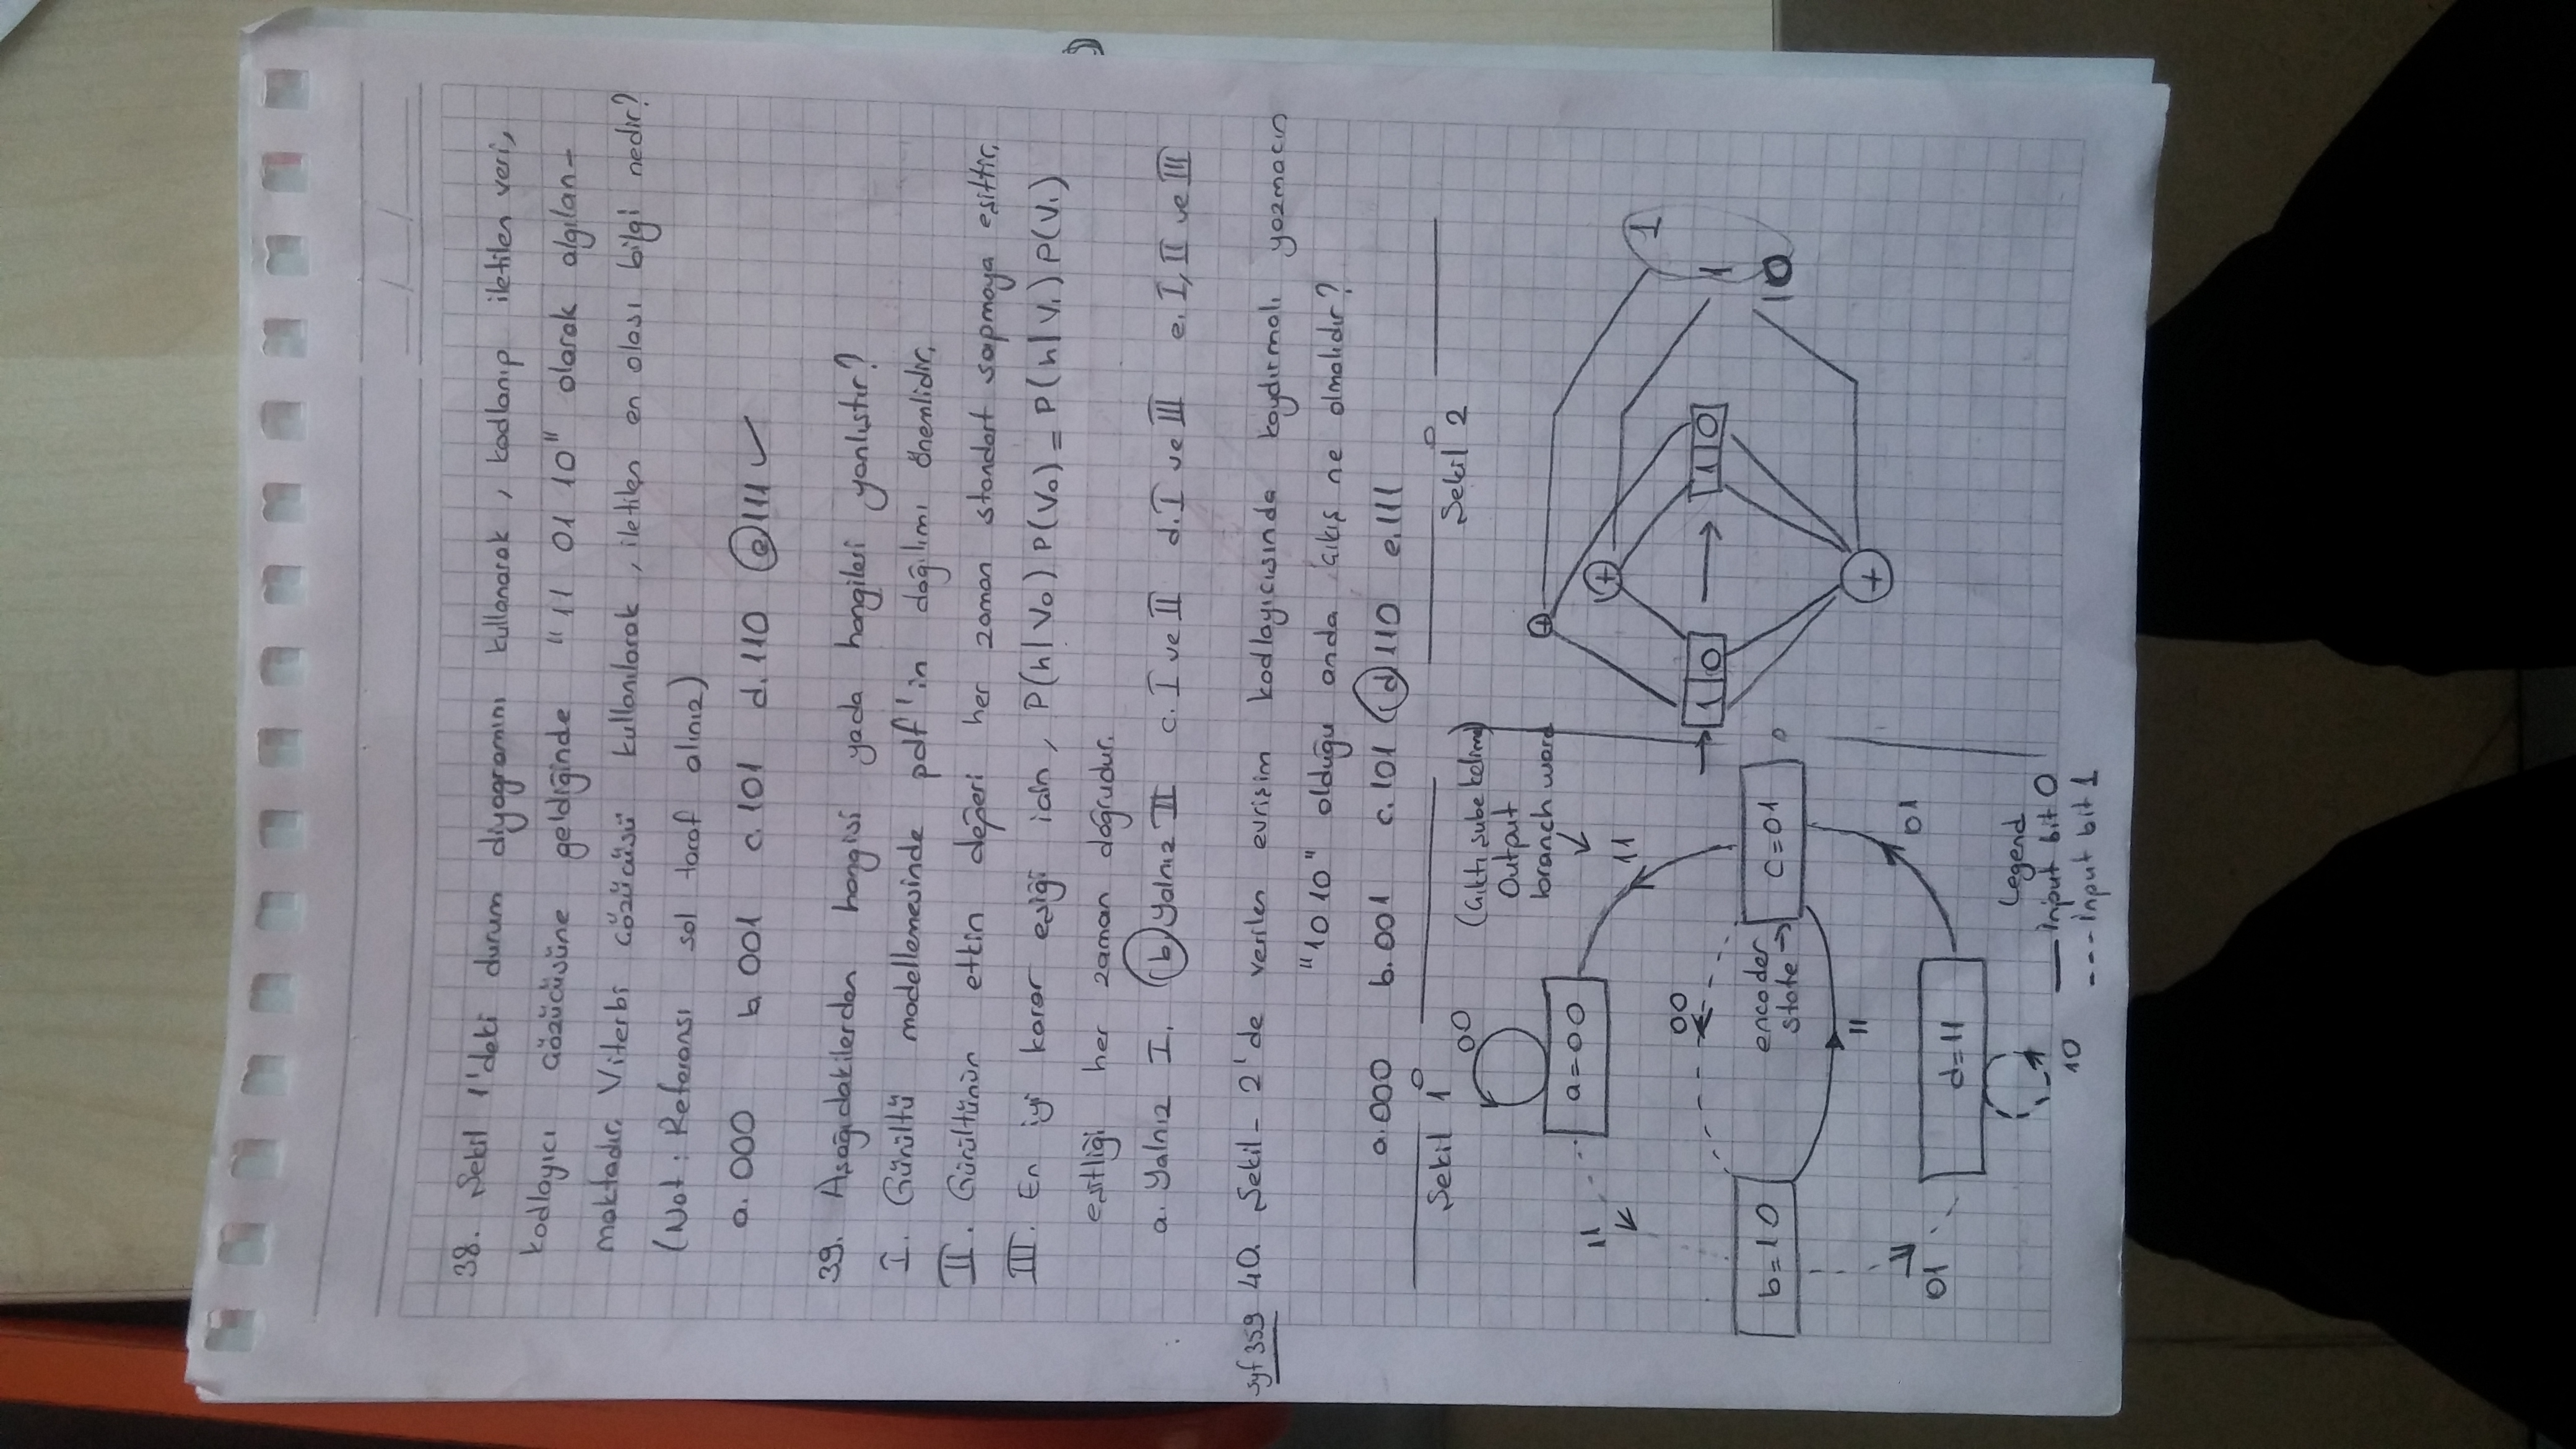 38. Şekil 1'deki durum diyogramını kullanarak, kodlanıp iletilen veri,
kodlayıcı çözücüsüne geldiğinde "11 01 10" olarak algılan-
maktadır. Viterbi çözücüsü kullanılarak, iletilen en olası bilgi nedir?
(Not: Referansı sol taraf alınız)
a. 000 b. 001 c. 101 d. 110 e. 111 ✓
39. Aşağıdakilerden hangisi yada hangileri yanlıştır?
I. Gürültü modellemesinde pdf'in dağılımı önemlidir.
II. Gürültünün etkin değeri her zaman standart sapmaya eşittir.
III. En iyi karar eşiği için, P(h|V₀) P(V₀) = P(h|V₁) P(V₁)
eşitliği her zaman doğrudur.
a. Yalnız I. b. Yalnız II c. I ve II d. I ve III e. I, II ve III
syf 359 40. Şekil-2'de verilen evrişim kodlayıcısında kaydırmalı yazmacın
"1010" olduğu anda çıkış ne olmalıdır?
a. 000 b. 001 c. 101 d. 110 e. 111
Şekil 1
Şekil 2
00
(Çıktı şube kelime)
Output
branch word
a=00
11
11
00
1
1 0
1 0
1
b=10
encoder
state →
c=01
10
11
01
01
d=11
10
Legend
— Input bit 0
--- Input bit 1